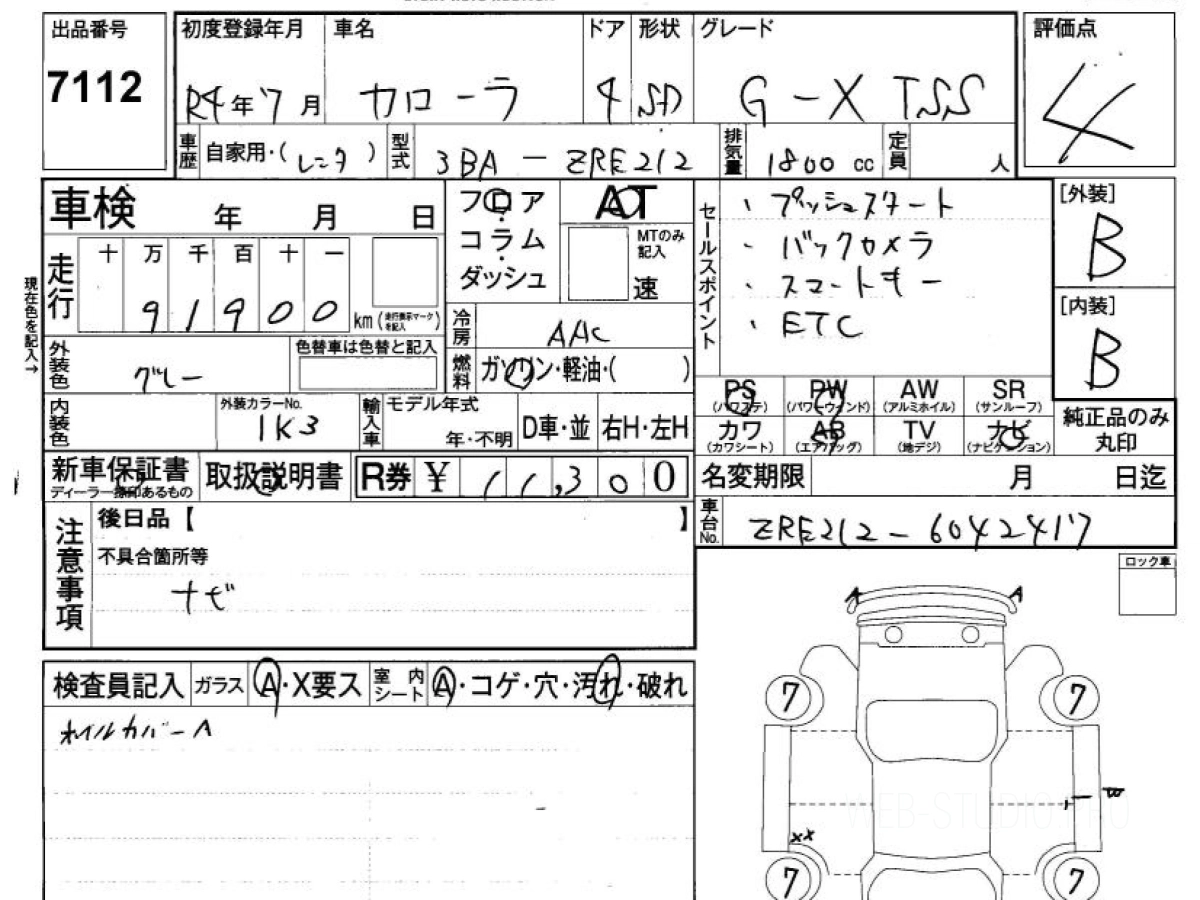 出品番号 初度登録年月 車名 ドア 形状 グレード 評価点
7112 R4年7月 カローラ 4 SD G-X TSS 4
車歴 自家用・(レンタ) 型式 3BA-ZRE212 排気量 1800cc 定員 人
車検 年 月 日 フロア AT セールスポイント ・プッシュスタート [外装]
コラム MTのみ記入 ・バックカメラ B
ダッシュ 速 ・スマートキー
・ETC
現在色を記入→
走行 十 万 千 百 十 一 [内装]
91900 km(走行表示マークを記入) 冷房 AAC B
外装色 グレー 色替車は色替と記入 燃料 ガソリン・軽油・( )
PS PW AW SR
(パワステ) (パワーウィンド) (アルミホイル) (サンルーフ) 純正品のみ
カワ AB TV ナビ 丸印
(カワシート) (エアバック) (地デジ) (ナビゲーション)
内装色 外装カラーNo. 1K3 輸入車 モデル年式 年・不明 D車・並 右H・左H
新車保証書 取扱説明書 R券 ¥ 11,300 名変期限 月 日迄
ディーラー捺印あるもの
車台No. ZRE212-6042417
注意事項 後日品【 】
不具合箇所等
ナビ
ロック車
A A
検査員記入 ガラス A・X要ス 室内シート A・コゲ・穴・汚れ・破れ
ホイルカバーA
7 7
XX
WEB-STUDIO.PRO
7 7